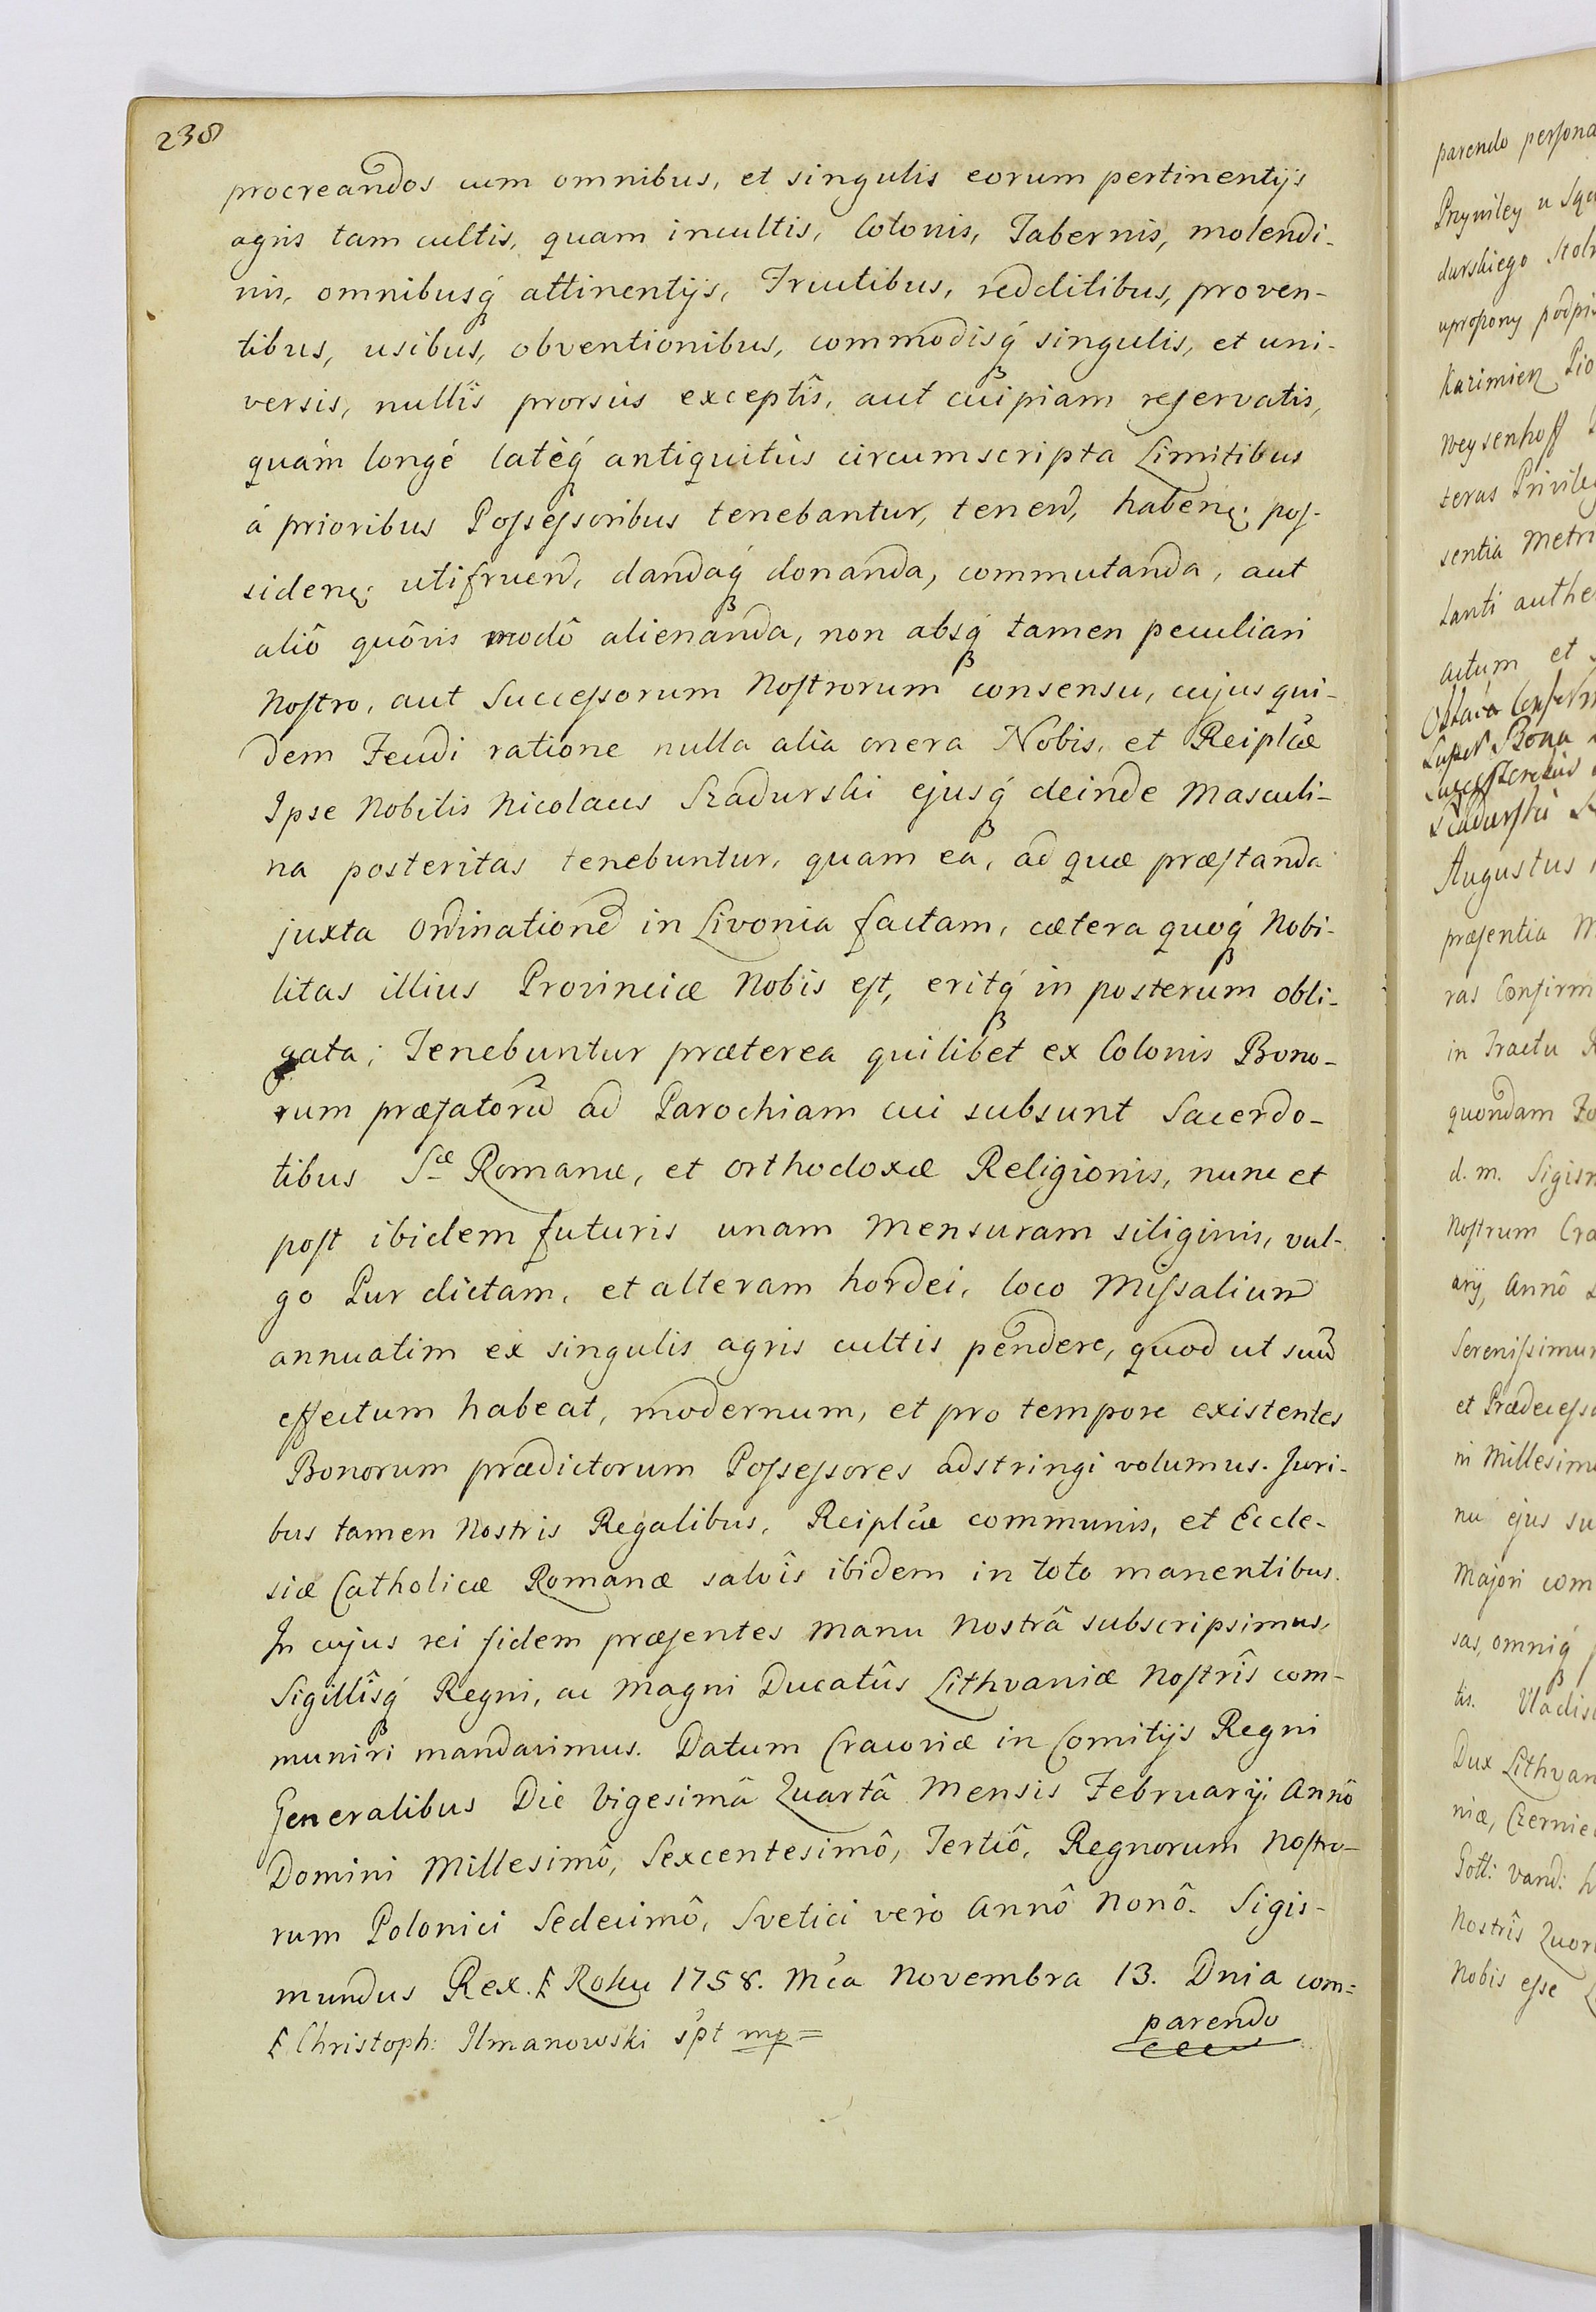 238
procreandos cum omnibus, et singulis eorum pertinentijs
agris tam cultis, quam incultis, Colonis, Tabernis, molendi-
nis, omnibusq́ attinentijs, Fructibus, redditibus, proven-
tibus, usibus, obventionibus, commodisq́ singulis, et uni-
versis, nullîs prorsùs exceptîs, aut cuipiam reservatis,
quám longé latèq́ antiquitùs circumscripta Limitibus
á prioribus Possessoribus tenebantur, tenend, habene; pos-
sidene; utifruend, dandaq́ donanda, commutanda, aut
aliô quôvis modô alienanda, non absq́ tamen peculiari
Nostro, aut Successorum Nostrorum consensu, cujus qui-
dem Feudi ratione nulla alia onera Nobis, et Reiplcæ
Ipse Nobilis Nicolaus Szadurski ejusq́ deinde Masculi-
na posteritas tenebuntur, quam ea, ad quæ præstanda
juxta Ordinationē in Livonia factam, cætera quoq́ Nobi-
litas illius Provinciæ Nobis est, eritq́ in posterum obli-
gata; Tenebuntur præterea quilibet ex Colonis Bono-
rum præfatorū ad Parochiam cui subsunt Sacerdo-
tibus Sæ Romanæ, et Orthodoxæ Religionis, nunc et
post ibidem futuris unam Mensuram siliginis, vul-
go Pur dictam, et alteram hordei, loco Missalium
annuatim ex singulis agris cultis pendere, quod ut suū
effectum habeat, modernum, et pro tempore existentes
Bonorum prædictorum Possessores adstringi volumus. Juri-
bus tamen Nostris Regalibus, Reiplcæ communis, et Eccle-
siæ Catholicæ Romanæ salvîs ibidem in toto manentibus.
In cujus rei fidem præsentes Manu Nostrâ subscripsimus,
Sigillîsq́ Regni, ac Magni Ducatûs Lithvaniæ Nostrîs com-
muniri mandavimus. Datum Cracoviæ in Comitijs Regni
Generalibus Die Vigesimâ Quartâ Mensis Februarij Annô
Domini Millesimô, Sexcentesimô, Tertiô, Regnorum Nostro-
rum Polonici Sedecimô, Svetici verò Annô Nonô. Sigis-
mundus Rex. Ł Roku 1758. Mca Novembra 13. Dnia com=
Ł Christoph: Ilmanowski spt mp= parendo
parendo persona
Przywiley u
durskiego Stoln
uproszony podpis
Kazimierz Pio
Weysenhoff
teras Privileg
sentia Metri
tanti authe
actum et
Oblata Confirm
Super Bona
Successoribus
Szadurski
Augustus
præsentia M
ras Confirm
in Tractu
quondam Fo
d. m. Sigism
Nostrum Cra
arij, Annô
Serenissimum
et Prædecesso
ni Millesimo
nu ejus su
Majori com
sas, omniq́
tis. Vladis
Dux Lithvan
niæ, Czernie
Gott: Vand:
Nostrîs Quor
Nobis esse